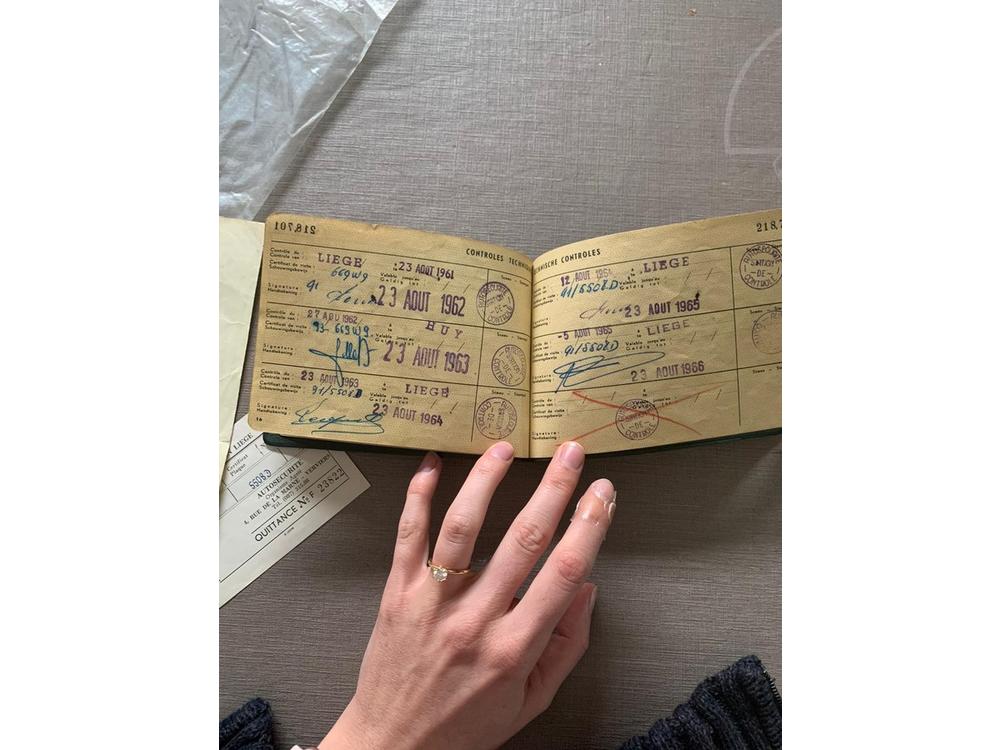 218,701
CONTROLES TECHN
Contrôle du :
Controle van :
LIEGE
23 AOUT 1961
Certificat de visite :
Schouwingsbewijs
669W9
Valable jusqu'au
Geldig tot
Signature :
Handtekening :
91
23 AOUT 1962
AUTOSECURITE
-DE-
CONTROLE
Contrôle du :
Controle van :
27 AOU 1962
à
te
HUY
Certificat de visite :
Schouwingsbewijs
93 669W9
Valable jusqu'au
Geldig tot
Signature :
Handtekening :
23 AOUT 1963
Contrôle du :
Controle van :
23 AOUT 1963
à
te
LIEGE
Certificat de visite :
Schouwingsbewijs
91/5508D
Valable jusqu'au
Geldig tot
Signature :
Handtekening :
23 AOUT 1964
16
218,7
TECHNISCHE CONTROLES
12 AOUT 1964
à
te
LIEGE
91/5508D
23 AOUT 1965
STATION
-DE-
CONTROLE
-5 AOUT 1965
à
te
LIEGE
91/5508D
Valable jusqu'au
Geldig tot
23 AOUT 1966
Contrôle du :
Controle van :
Certificat de visite :
Schouwingsbewijs
Valable jusqu'au
Geldig tot
Signature :
Handtekening :
LIEGE
Certificat
Plaque
5508D
AUTOSECURITE
Organisme Agréé
4, RUE DE LA MARNE - VERVIERS
QUITTANCE Nº F 23822